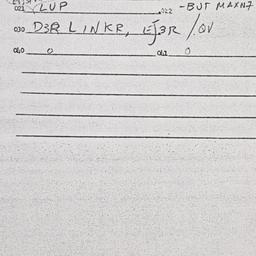 021 YLUP 022 -BUT MAXN7
030 D3R LINKR, EJ3R /.OV
040 0 041 0